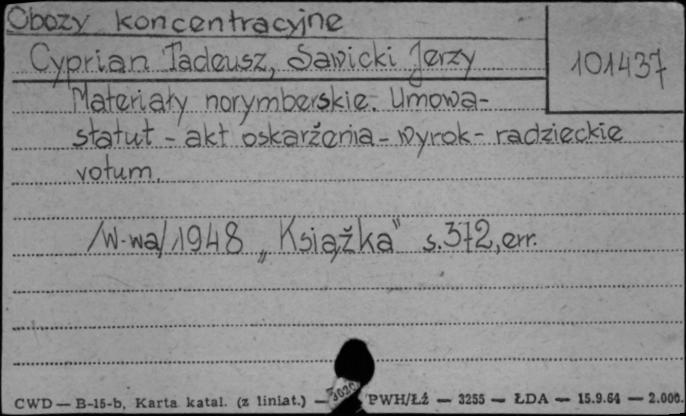 Obozy koncentracyjne
Cyprian Tadeusz, Sawicki Jerzy
101437
Materiały norymberskie. Umowa-
statut - akt oskarżenia - wyrok - radzieckie
votum.
/W-wa/ 1948 „Książka" s.372, err.
CWD — B-15-b, Karta katal. (z liniat.) — PWH/Łź — 3255 — ŁDA — 15.9.64 — 2.000.